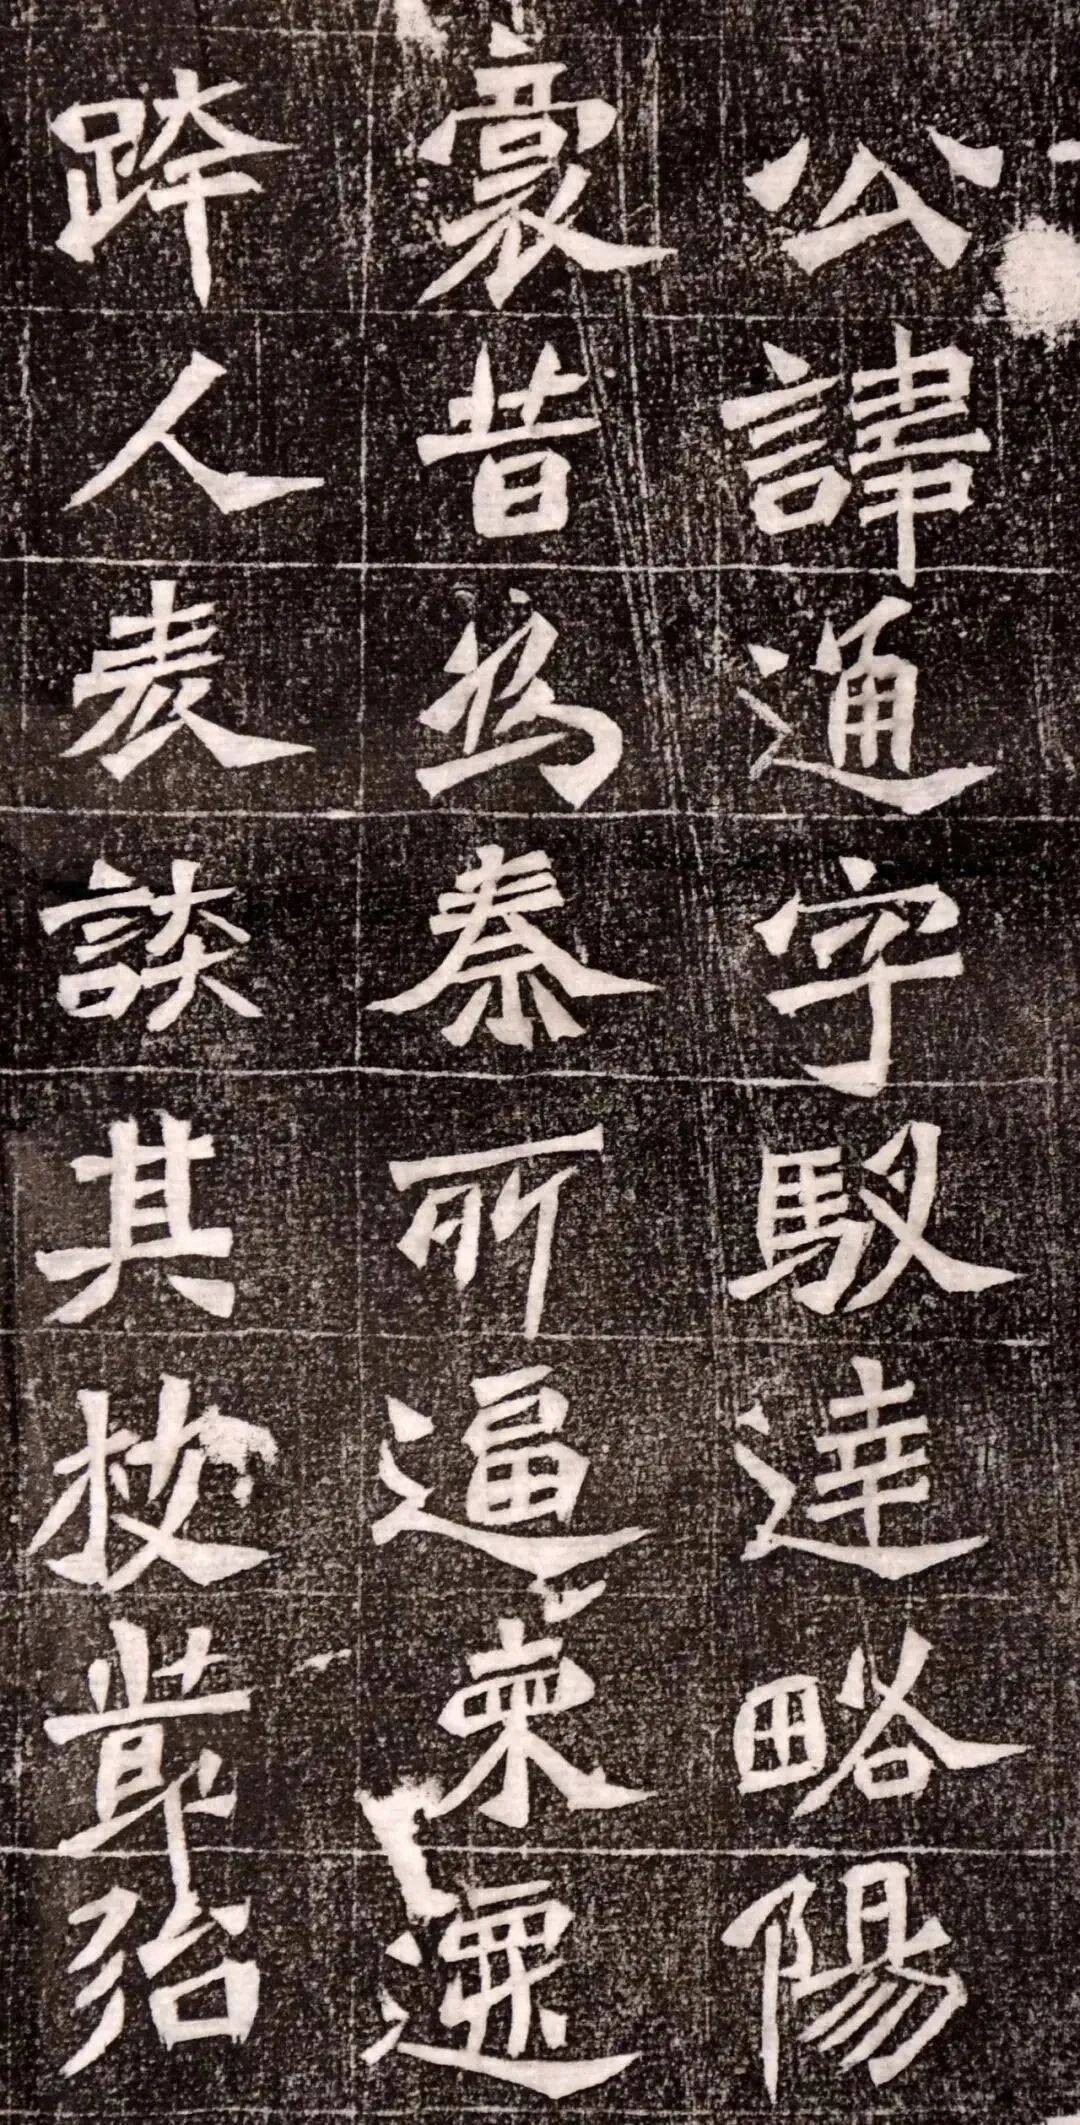 公諱通字馭達略陽
昔為秦所逼東遷
跨人表談其枝叢